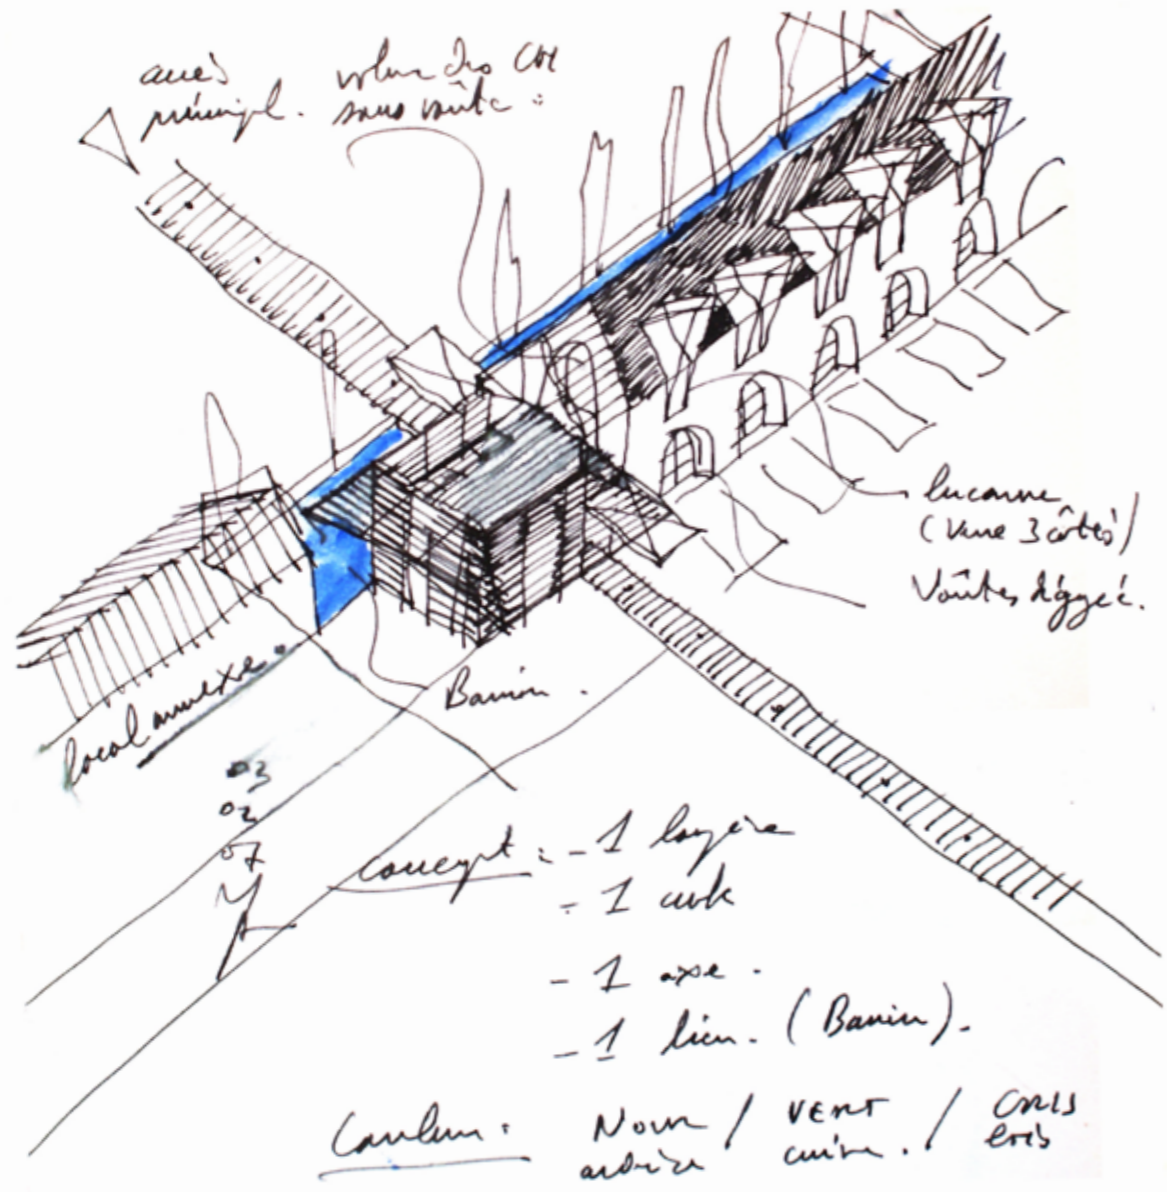 accès
principal.
volume des CH
sous voûte :
lucarne
(Vue 3 côtés)
Voûtes
local annexe.
Bassin.
03
02
07
concept : - 1 longère
- 1 cube
- 1 axe.
- 1 lien. (Bassin).
Couleur : Noir / VERT / GRIS
ardoise cuivre. bois